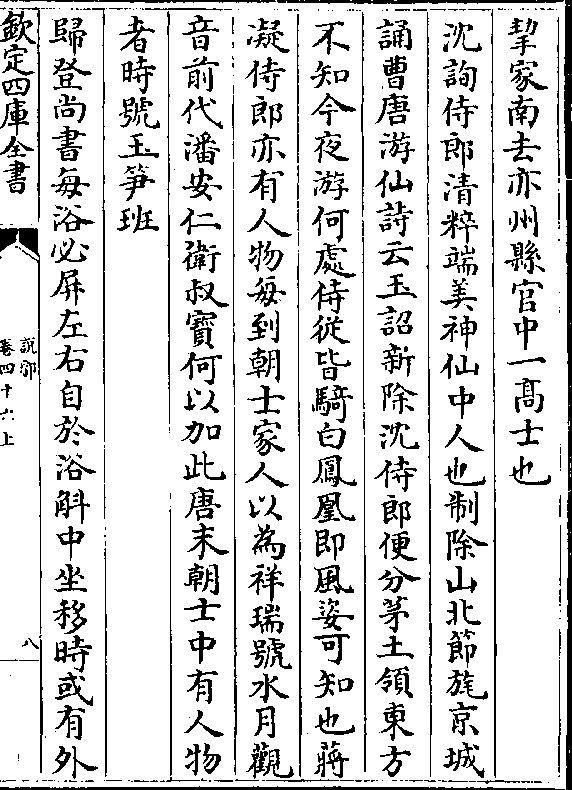 挈家南去亦州縣官中一髙士也
沈詢侍郎清粹端美神仙中人也制除山北節旄京城
誦曹唐游仙詩云玉詔新除沈侍郎便分茅土領東方
不知今夜游何處侍從皆騎白鳳凰即風姿可知也蔣
凝侍郎亦有人物每到朝士家人以為祥瑞號水月觀
音前代潘安仁衛叔寶何以加此唐末朝士中有人物
者時號玉笋班
歸登尚書每浴必屏左右自於浴斛中坐移時或有外
欽定四庫全書
說郛
卷四十六上
八